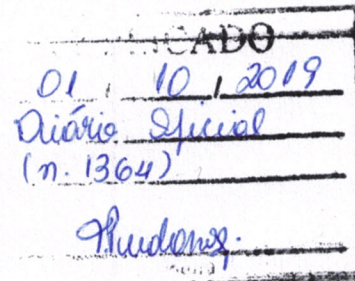 CADO
01 10, 2019
Diário Oficial
(n. 1364)